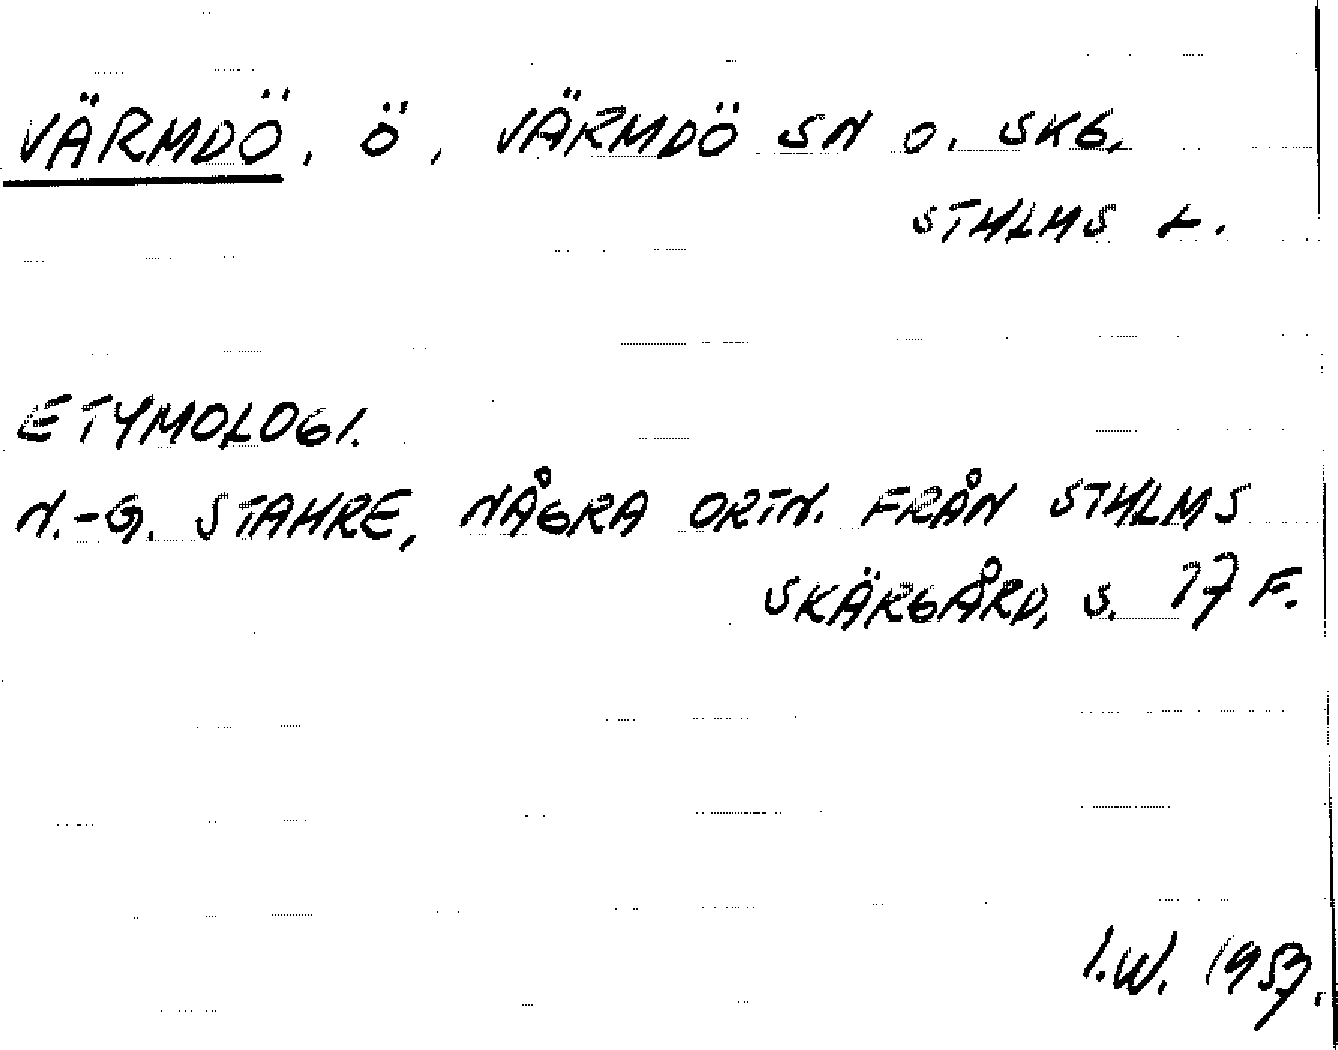 VÄRMDÖ, Ö, VÄRMDÖ SN O. SKG.
STHLMS L.
ETYMOLOGI.
N.-G. STAHRE, NÅGRA ORTN. FRÅN STHLMS
SKÄRGÅRD, S. 17 F.
I.W. 1957.